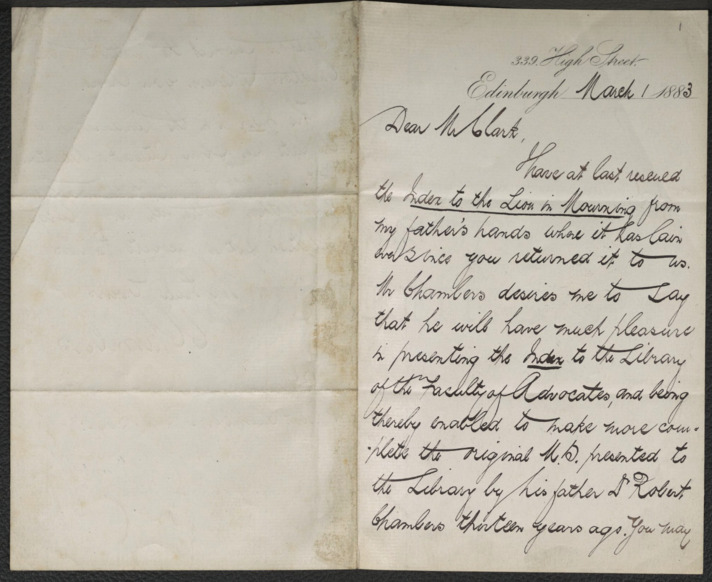 1
339. High Street.
Edinburgh March 1 1883
Dear Mr Clark,
I have at last rescued
the Index to the Lion in Mourning from
my father's hands where it has lain
ever since you returned it to us.
Mr Chambers desires me to say
that he will have much pleasure
in presenting the Index to the Library
of the Faculty of Advocates, and being
thereby enabled to make more com-
-plete the original M.S. presented to
the Library by his father Dr Robert
Chambers thirteen years ago. You may